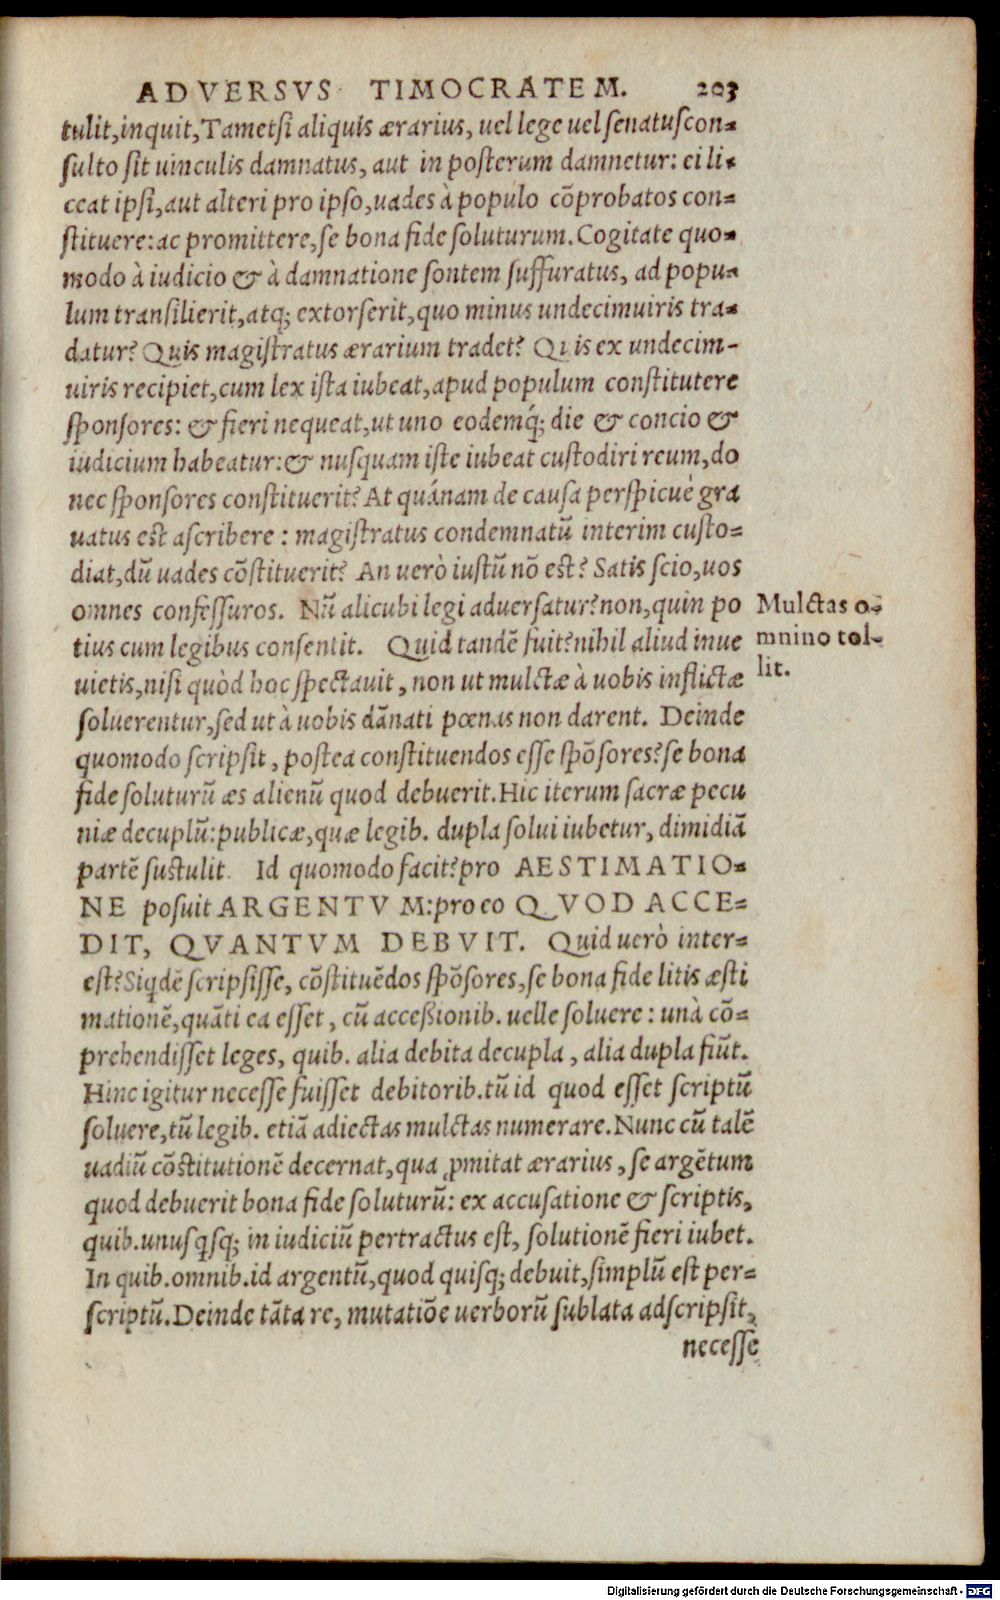 ADVERSVS TIMOCRATEM. 203
tulit,inquit,Tametsi aliquis ærarius, uel lege uel senatuscon=
sulto sit uinculis damnatus, aut in posterum damnetur: ei li=
ceat ipsi,aut alteri pro ipso,uades à populo cōprobatos con=
stituere:ac promittere,se bona fide soluturum.Cogitate quo=
modo à iudicio & à damnatione sontem suffuratus, ad popu=
lum transilierit,atq; extorserit,quo minus undecimuiris tra=
datur? Quis magistratus ærarium tradet? Quis ex undecim-
uiris recipiet,cum lex ista iubeat,apud populum constitutere
sponsores: & fieri nequeat,ut uno eodemq́; die & concio &
iudicium habeatur:& nusquam iste iubeat custodiri reum,do
nec sponsores constituerit? At quánam de causa perspicuè gra
uatus est ascribere : magistratus condemnatū interim custo=
diat,dū uades cōstituerit? An uerò iustū nō est? Satis scio,uos
omnes confessuros. Nū alicubi legi aduersatur?non,quin po
tius cum legibus consentit. Quid tandē fuit?nihil aliud inue
uietis,nisi quòd hoc spectauit, non ut mulctæ à uobis inflictæ
soluerentur,sed ut à uobis dānati pœnas non darent. Deinde
quomodo scripsit, postea constituendos esse spōsores?se bona
fide soluturū æs alienū quod debuerit.Hic iterum sacræ pecu
niæ decuplū:publicæ,quæ legib. dupla solui iubetur, dimidiā
partē sustulit. Id quomodo facit?pro AESTIMATIO=
NE posuit ARGENTVM:pro eo QVOD ACCE=
DIT, QVANTVM DEBVIT. Quid uerò inter=
est?Siqdē scripsisse, cōstituēdos spōsores,se bona fide litis æsti
mationē,quāti ea esset, cū acceßionib. uelle soluere : unà cō=
prehendisset leges, quib. alia debita decupla, alia dupla fiūt.
Hinc igitur necesse fuisset debitorib.tū id quod esset scriptū
soluere,tū legib. etiā adiectas mulctas numerare.Nunc cū talē
uadiū cōstitutionē decernat,qua ꝓmitat ærarius, se argētum
quod debuerit bona fide soluturū: ex accusatione & scriptis,
quib.unusqsq; in iudiciū pertractus est, solutionē fieri iubet.
In quib.omnib.id argentū,quod quisq; debuit,simplū est per=
scriptū.Deinde tāta re, mutatiōe uerborū sublata adscripsit,
necesse
Mulctas o=
mnino tol-
lit.
Digitalisierung gefördert durch die Deutsche Forschungsgemeinschaft - DFG